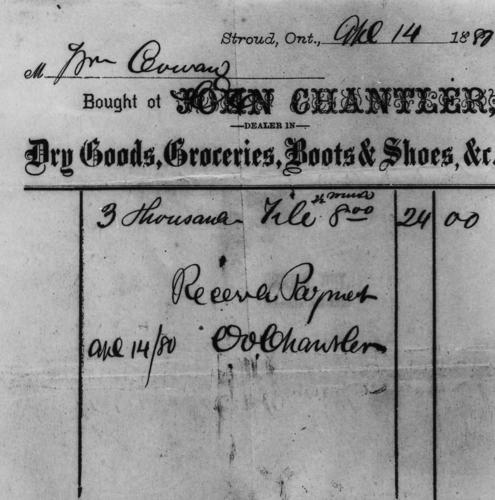 Stroud, Ont., Apl 14 1880
M Wm Cowan
Bought of JOHN CHANTLER,
DEALER IN
Dry Goods, Groceries, Boots & Shoes, &c.
3 Thousand Tile 8.00 24 00
Receivd Paymet
Apl 14/80 Chantler